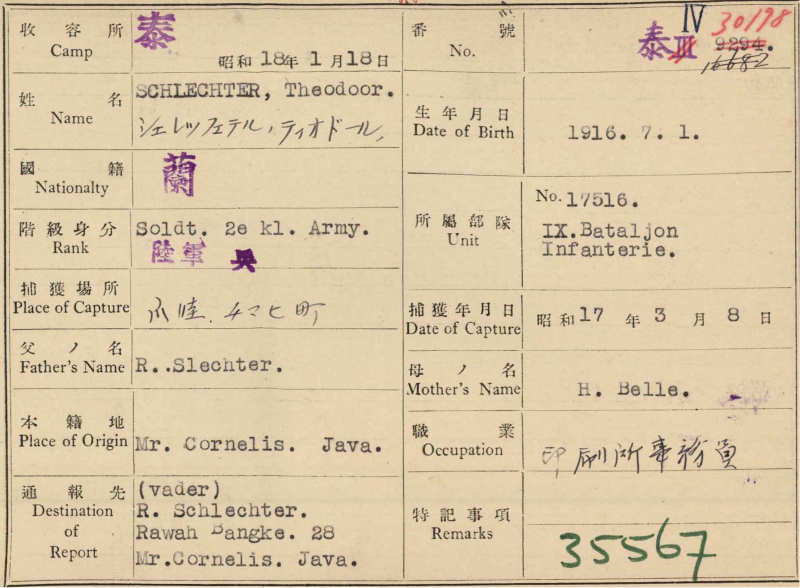 收容所
Camp
泰
昭和 18年 1月18日
番號
No.
泰 III IV 30198
9294.
16682
姓名
Name
SCHLECHTER, Theodoor.
シェレッフェテル、ティオドール、
生年月日
Date of Birth
1916. 7. 1.
國籍
Nationalty
蘭
階級身分
Rank
Soldt. 2e kl. Army.
陸軍 兵
所屬部隊
Unit
No. 17516.
IX.Bataljon
Infanterie.
捕獲場所
Place of Capture
チマヒ町
捕獲年月日
Date of Capture
昭和17年3月8日
父ノ名
Father's Name
R..Slechter.
母ノ名
Mother's Name
H. Belle.
本籍地
Place of Origin
Mr. Cornelis. Java.
職業
Occupation
印刷所事務員
通報先
Destination
of
Report
(vader)
R. Schlechter.
Rawah Bangke. 28
Mr.Cornelis. Java.
特記事項
Remarks
35567